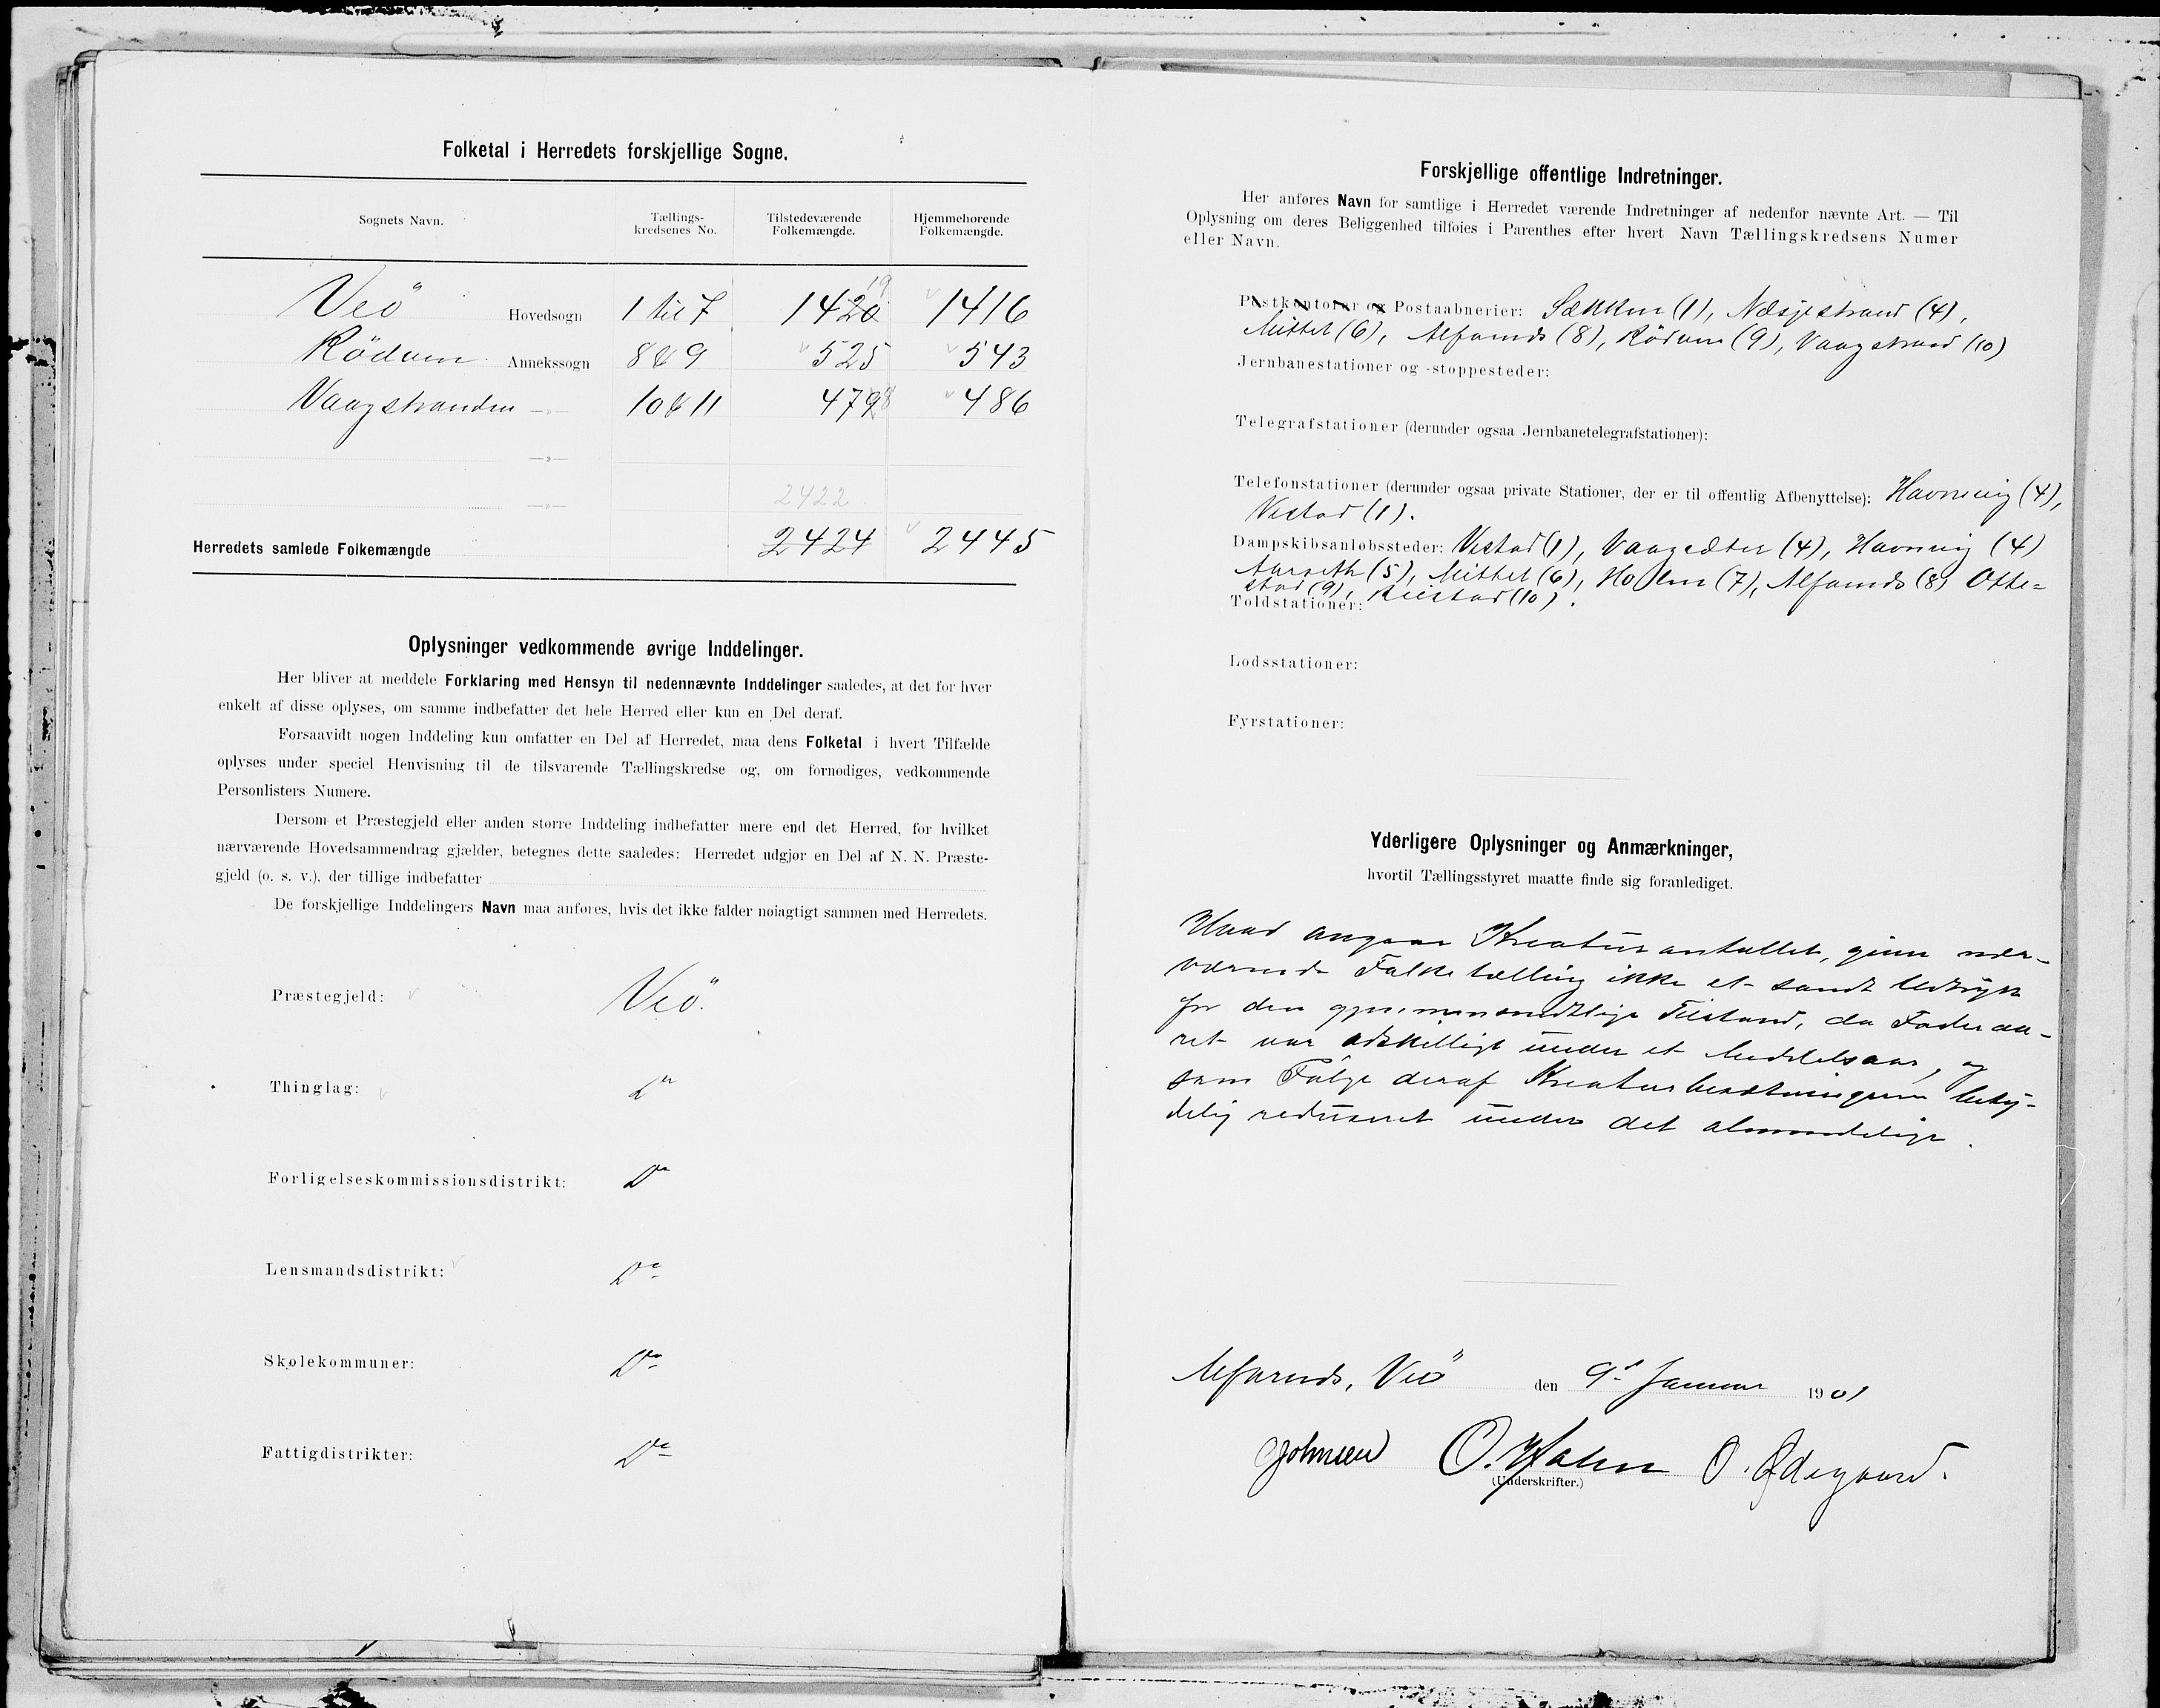 Folketal i Herredets forskjellige Sogne.
Sognets Navn. Tællings-kredsenes No. Tilstedeværende Folkemængde. Hjemmehørende Folkemængde.
Veö Hovedsogn 1 til 7 1420 19 1416
Rödven Annekssogn 8 & 9 525 543
Vaagstranden —„— 10 & 11 479 8 486
—„—
2422
—„—
Herredets samlede Folkemængde 2424 2445
Oplysninger vedkommende øvrige Inddelinger.
Her bliver at meddele Forklaring med Hensyn til nedennævnte Inddelinger saaledes, at det for hver
enkelt af disse oplyses, om samme indbefatter det hele Herred eller kun en Del deraf.
Forsaavidt nogen Inddeling kun omfatter en Del af Herredet, maa dens Folketal i hvert Tilfælde
oplyses under speciel Henvisning til de tilsvarende Tællingskredse og, om fornødiges, vedkommende
Personlisters Numere.
Dersom et Præstegjeld eller anden større Inddeling indbefatter mere end det Herred, for hvilket
nærværende Hovedsammendrag gjælder, betegnes dette saaledes: Herredet udgjør en Del af N. N. Præste-
gjeld (o. s. v.), der tillige indbefatter
De forskjellige Inddelingers Navn maa anføres, hvis det ikke falder nøiagtigt sammen med Herredets.
Præstegjeld: Veö.
Thinglag: Do
Forligelseskommissionsdistrikt: Do
Lensmandsdistrikt: Do
Skolekommuner: Do
Fattigdistrikter: Do
Forskjellige offentlige Indretninger.
Her anføres Navn for samtlige i Herredet værende Indretninger af nedenfor nævnte Art. — Til
Oplysning om deres Beliggenhed tilføies i Parenthes efter hvert Navn Tællingskredsens Numer
eller Navn.
Postkontorer og Postaabnerier: Sækken (1), Næsjestrand (4),
Mittet (6), Alfarnes (8), Rödven (9), Vaagstrand (10)
Jernbanestationer og -stoppesteder:
Telegrafstationer (derunder ogsaa Jernbanetelegrafstationer):
Telefonstationer (derunder ogsaa private Stationer, der er til offentlig Afbenyttelse): Havnevig (4),
Vestad (1).
Dampskibsanløbssteder: Vestad (1), Vaagsæter (4), Havnevig (4)
Aarseth (5), Mittet (6), Holm (7), Alfarnes (8) Otte=
stad (9), (10).
Toldstationer:
Lodsstationer:
Fyrstationer:
Yderligere Oplysninger og Anmærkninger,
hvortil Tællingsstyret maatte finde sig foranlediget.
Hvad angaar Kreaturantallet, giver nær-
værende Folketælling ikke et sandt Udtryk
for den gjennemsnitlige Tilstand, da Foderaa-
ret var adskilligt under et Middelsaar, og
som Følge deraf Kreaturbesætningerne bety-
delig reduseret under det almindelige.
Alfarnes, Veö den 9de Januar 1901
Johnsen O. Holm O. Ødegaard.
(Underskrifter.)